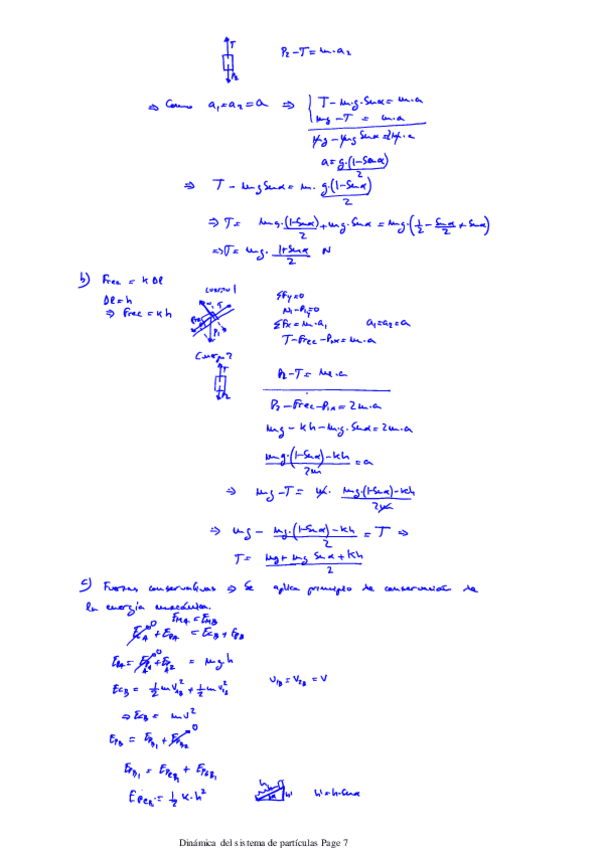 T
P₂-T = m·a₂
P₂
⇒ Como a₁=a₂=a ⇒ { T-m·g·Senα = m·a
mg-T = m·a
mg-mgSenα=2m·a
a=g·(1-Senα)/2
⇒ T-mgSenα = m·g·(1-Senα)/2
⇒ T= mg·(1-Senα)/2+mg·Senα = mg·(1/2-Senα/2+Senα)
⇒ T= mg·(1+Senα)/2 N
b) Frec = k Dl
Dl=h
⇒ Frec = kh
Cuerpo 1
ΣFy=0
N₁-P₁y=0
ΣFx=m·a₁ a₁=a₂=a
T-Frec-P₁x=m·a
Cuerpo 2
T
P₂
P₂-T = m·a
P₂-Frec-P₁x=2m·a
mg-kh-mg·Senα=2m·a
(mg·(1-Senα)-kh)/2m = a
⇒ mg-T = m·(mg(1-Senα)-kh)/2m
⇒ mg-(mg·(1-Senα)-kh)/2 = T ⇒
T = (mg+mg Senα+kh)/2
c) Fuerzas conservativas ⇒ Se aplica principio de conservación de
la energía mecánica.
EMA=EMB
EcA⁰+EPA = EcB+EPB
EPA = EPA1⁰+EPA2 = mgh
EcB = 1/2mv₁B²+1/2mv₂B² v₁B=v₂B=v
⇒ EcB = mv²
EPB = EPB1+EPB2⁰
EPB1 = EPeB1+EPgB1
EPeB1=1/2k·h²
h
α
h'
h'=h·senα
Dinámica del sistema de partículas Page 7